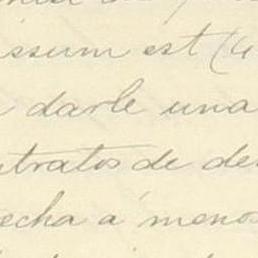 issum est (
darle una
ntratos de de
echa á menos